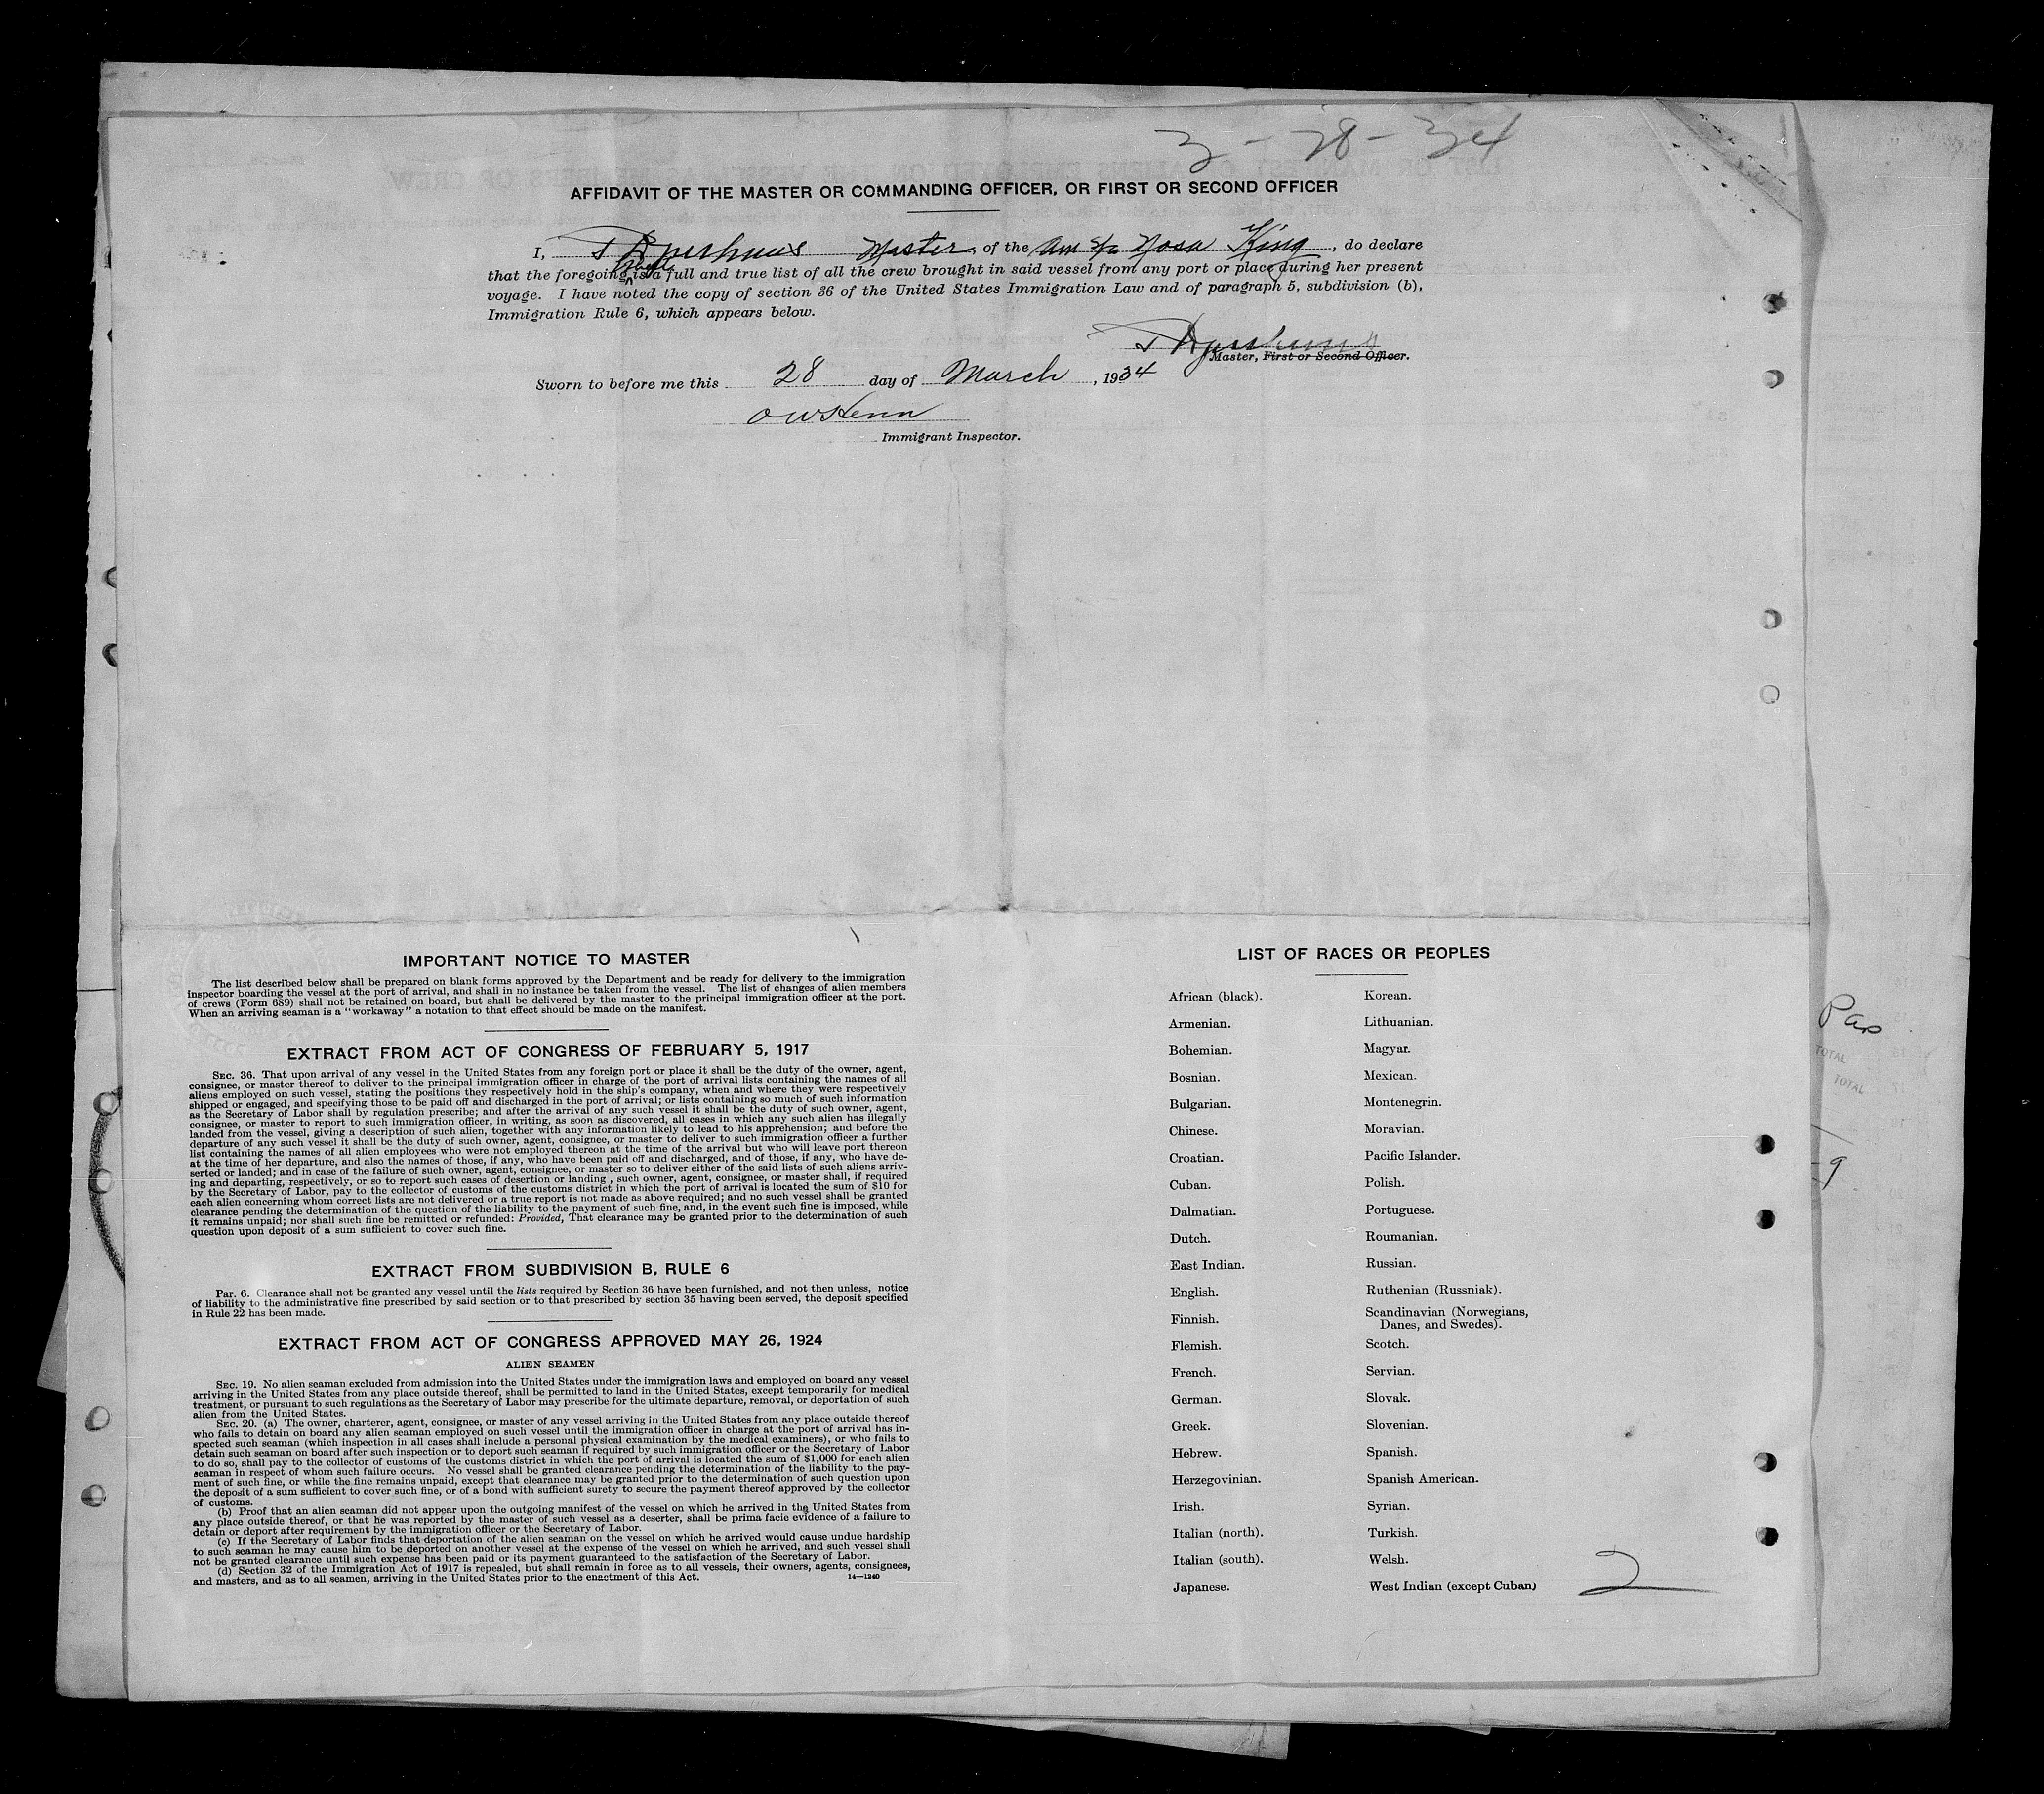 3-28-34
AFFIDAVIT OF THE MASTER OR COMMANDING OFFICER, OR FIRST OR SECOND OFFICER
I, Master, of the Am S/S Nosa King, do declare
that the foregoing is a full and true list of all the crew brought in said vessel from any port or place during her present
voyage. I have noted the copy of section 36 of the United States Immigration Law and of paragraph 5, subdivision (b),
Immigration Rule 6, which appears below.
Master, First or Second Officer.
Sworn to before me this 28 day of March, 1934
Immigrant Inspector.
IMPORTANT NOTICE TO MASTER
The list described below shall be prepared on blank forms approved by the Department and be ready for delivery to the immigration
inspector boarding the vessel at the port of arrival, and shall in no instance be taken from the vessel. The list of changes of alien members
of crews (Form 689) shall not be retained on board, but shall be delivered by the master to the principal immigration officer at the port.
When an arriving seaman is a "workaway" a notation to that effect should be made on the manifest.
EXTRACT FROM ACT OF CONGRESS OF FEBRUARY 5, 1917
SEC. 36. That upon arrival of any vessel in the United States from any foreign port or place it shall be the duty of the owner, agent,
consignee, or master thereof to deliver to the principal immigration officer in charge of the port of arrival lists containing the names of all
aliens employed on such vessel, stating the positions they respectively hold in the ship's company, when and where they were respectively
shipped or engaged, and specifying those to be paid off and discharged in the port of arrival; or lists containing so much of such information
as the Secretary of Labor shall by regulation prescribe; and after the arrival of any such vessel it shall be the duty of such owner, agent,
consignee, or master to report to such immigration officer, in writing, as soon as discovered, all cases in which any such alien has illegally
landed from the vessel, giving a description of such alien, together with any information likely to lead to his apprehension; and before the
departure of any such vessel it shall be the duty of such owner, agent, consignee, or master to deliver to such immigration officer a further
list containing the names of all alien employees who were not employed thereon at the time of the arrival but who will leave port thereon
at the time of her departure, and also the names of those, if any, who have been paid off and discharged, and of those, if any, who have de-
serted or landed; and in case of the failure of such owner, agent, consignee, or master so to deliver either of the said lists of such aliens arriv-
ing and departing, respectively, or so to report such cases of desertion or landing , such owner, agent, consignee, or master, shall, if required
by the Secretary of Labor, pay to the collector of customs of the customs district in which the port of arrival is located the sum of $10 for
each alien concerning whom correct lists are not delivered or a true report is not made as above required; and no such vessel shall be granted
clearance pending the determination of the question of the liability to the payment of such fine, and, in the event such fine is imposed, while
it remains unpaid; nor shall such fine be remitted or refunded: Provided, That clearance may be granted prior to the determination of such
question upon deposit of a sum sufficient to cover such fine.
EXTRACT FROM SUBDIVISION B, RULE 6
Par. 6. Clearance shall not be granted any vessel until the lists required by Section 36 have been furnished, and not then unless, notice
of liability to the administrative fine prescribed by said section or to that prescribed by section 35 having been served, the deposit specified
in Rule 22 has been made.
EXTRACT FROM ACT OF CONGRESS APPROVED MAY 26, 1924
ALIEN SEAMEN
SEC. 19. No alien seaman excluded from admission into the United States under the immigration laws and employed on board any vessel
arriving in the United States from any place outside thereof, shall be permitted to land in the United States, except temporarily for medical
treatment, or pursuant to such regulations as the Secretary of Labor may prescribe for the ultimate departure, removal, or deportation of such
alien from the United States.
SEC. 20. (a) The owner, charterer, agent, consignee, or master of any vessel arriving in the United States from any place outside thereof
who fails to detain on board any alien seaman employed on such vessel until the immigration officer in charge at the port of arrival has in-
spected such seaman (which inspection in all cases shall include a personal physical examination by the medical examiners), or who fails to
detain such seaman on board after such inspection or to deport such seaman if required by such immigration officer or the Secretary of Labor
to do so, shall pay to the collector of customs of the customs district in which the port of arrival is located the sum of $1,000 for each alien
seaman in respect of whom such failure occurs. No vessel shall be granted clearance pending the determination of the liability to the pay-
ment of such fine, or while the fine remains unpaid, except that clearance may be granted prior to the determination of such question upon
the deposit of a sum sufficient to cover such fine, or of a bond with sufficient surety to secure the payment thereof approved by the collector
of customs.
(b) Proof that an alien seaman did not appear upon the outgoing manifest of the vessel on which he arrived in the United States from
any place outside thereof, or that he was reported by the master of such vessel as a deserter, shall be prima facie evidence of a failure to
detain or deport after requirement by the immigration officer or the Secretary of Labor.
(c) If the Secretary of Labor finds that deportation of the alien seaman on the vessel on which he arrived would cause undue hardship
to such seaman he may cause him to be deported on another vessel at the expense of the vessel on which he arrived, and such vessel shall
not be granted clearance until such expense has been paid or its payment guaranteed to the satisfaction of the Secretary of Labor.
(d) Section 32 of the Immigration Act of 1917 is repealed, but shall remain in force as to all vessels, their owners, agents, consignees,
and masters, and as to all seamen, arriving in the United States prior to the enactment of this Act. 14—1240
LIST OF RACES OR PEOPLES
African (black). Korean.
Armenian. Lithuanian.
Bohemian. Magyar.
Bosnian. Mexican.
Bulgarian. Montenegrin.
Chinese. Moravian.
Croatian. Pacific Islander.
Cuban. Polish.
Dalmatian. Portuguese.
Dutch. Roumanian.
East Indian. Russian.
English. Ruthenian (Russniak).
Finnish. Scandinavian (Norwegians,
Danes, and Swedes).
Flemish. Scotch.
French. Servian.
German. Slovak.
Greek. Slovenian.
Hebrew. Spanish.
Herzegovinian. Spanish American.
Irish. Syrian.
Italian (north). Turkish.
Italian (south). Welsh.
Japanese. West Indian (except Cuban)
2
Pas
TOTAL
TOTAL
9